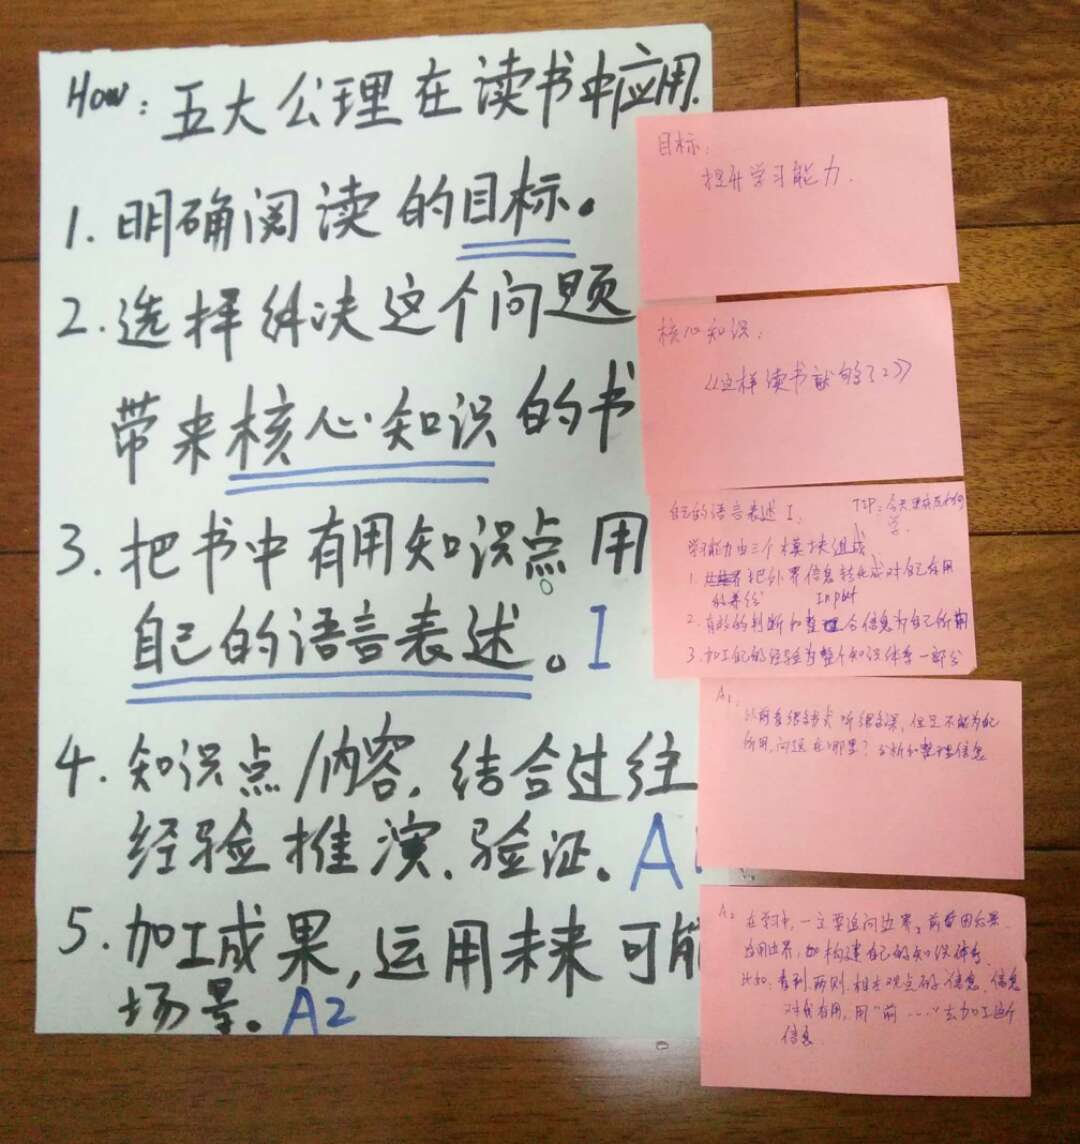 How: 五大公理在读书中应用.
1. 明确阅读的目标。
2. 选择解决这个问题
带来核心知识的书
3. 把书中有用知识点用
自己的语言表述。I
4. 知识点/内容,结合过往
经验推演、验证。A
5. 加工成果,运用未来可能
场景。A2
目标:
提升学习能力.
核心知识:
《这样读书就够了2》
自己的语言表述 I:
TIP:
学.
学习能力由三个模块组成
1. 把外界信息转化成对自己有用
的养分 Input
2. 有效的判断和整合信息为自己所用
3. 加工自己的经验为整个知识体系一部分
A1:
以前看很多书,听很多课,但是不能为己
所用,问题在哪里?分析和整理信息
A2
在学习中,一定要追问边界,前因后果
适用边界,构建自己的知识体系
比如:看到两则相左观点的信息,信息
对我有用,用"前……"去加工这个
信息